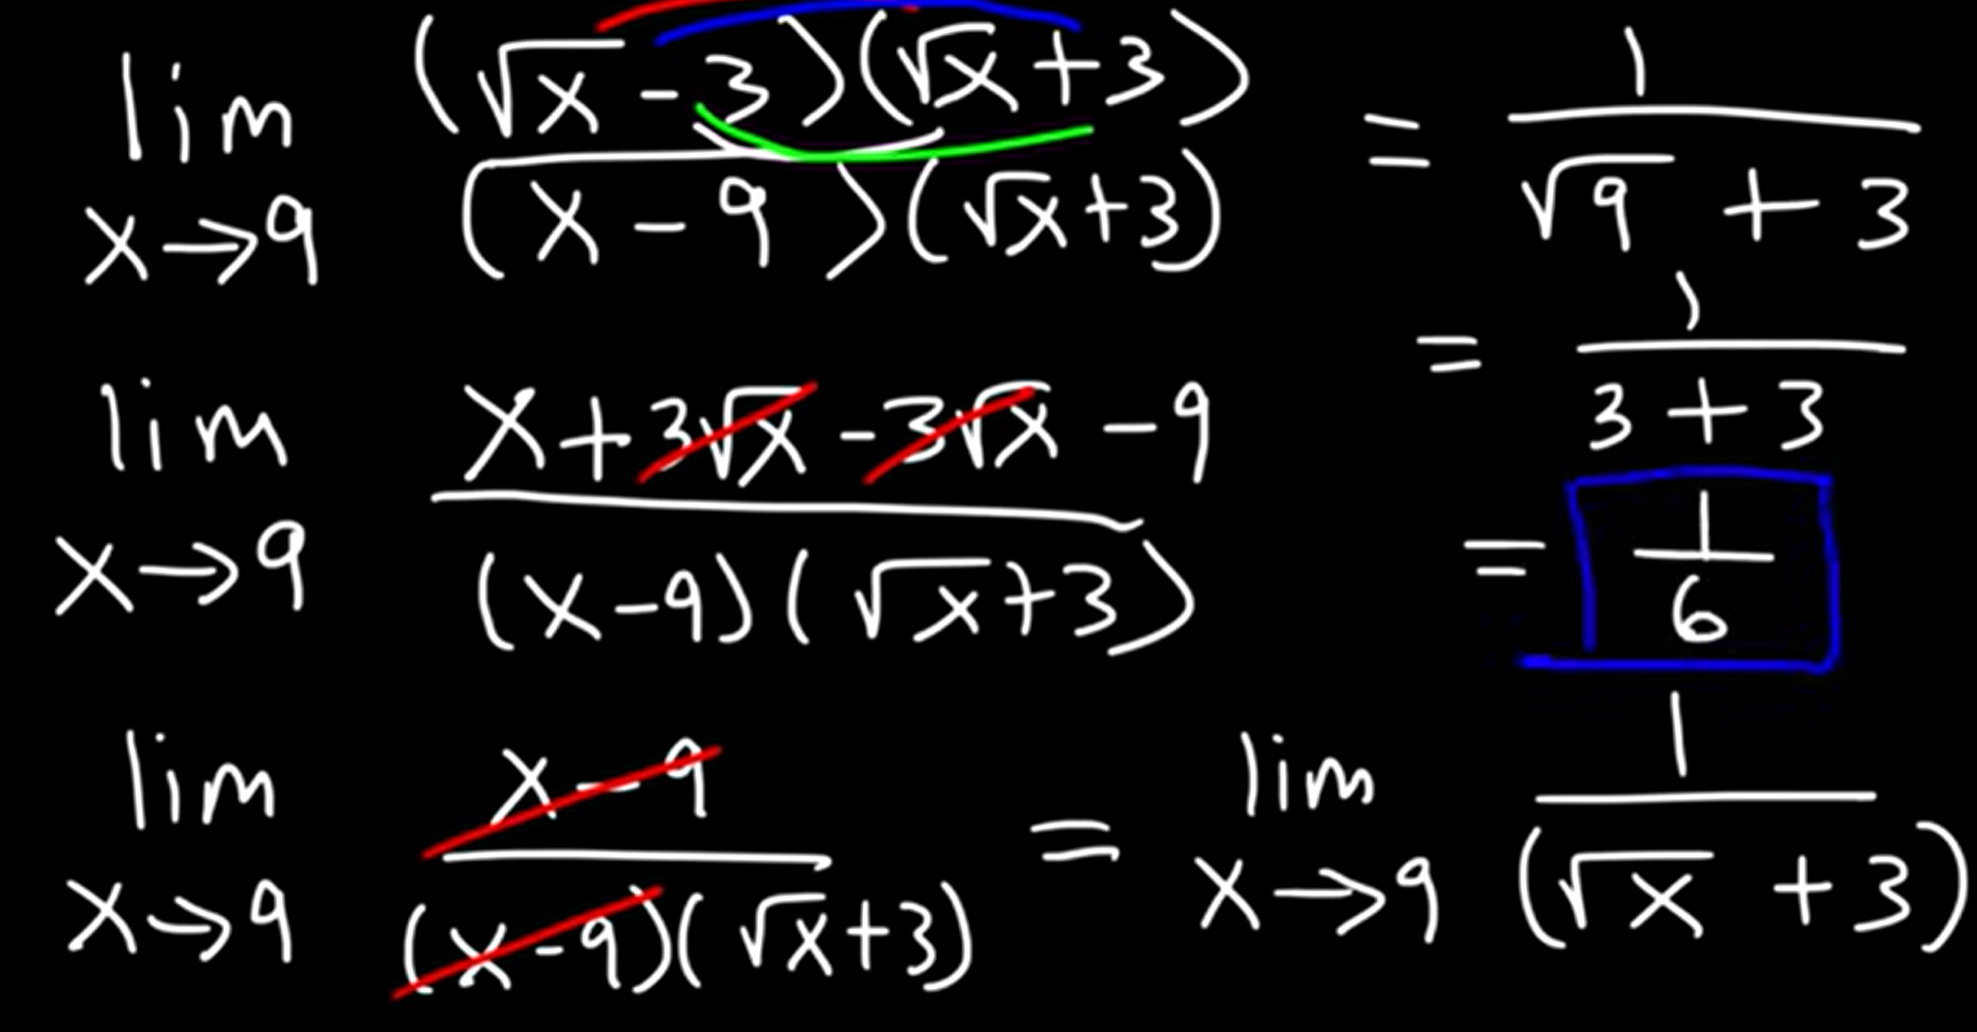 lim x→9 (√x - 3)(√x + 3) / (x - 9)(√x + 3)
lim x→9 x + 3√x - 3√x - 9 / (x - 9)(√x + 3)
lim x→9 x - 9 / (x - 9)(√x + 3) = lim x→9 1 / (√x + 3)
= 1 / √9 + 3
= 1 / 3 + 3
= 1 / 6